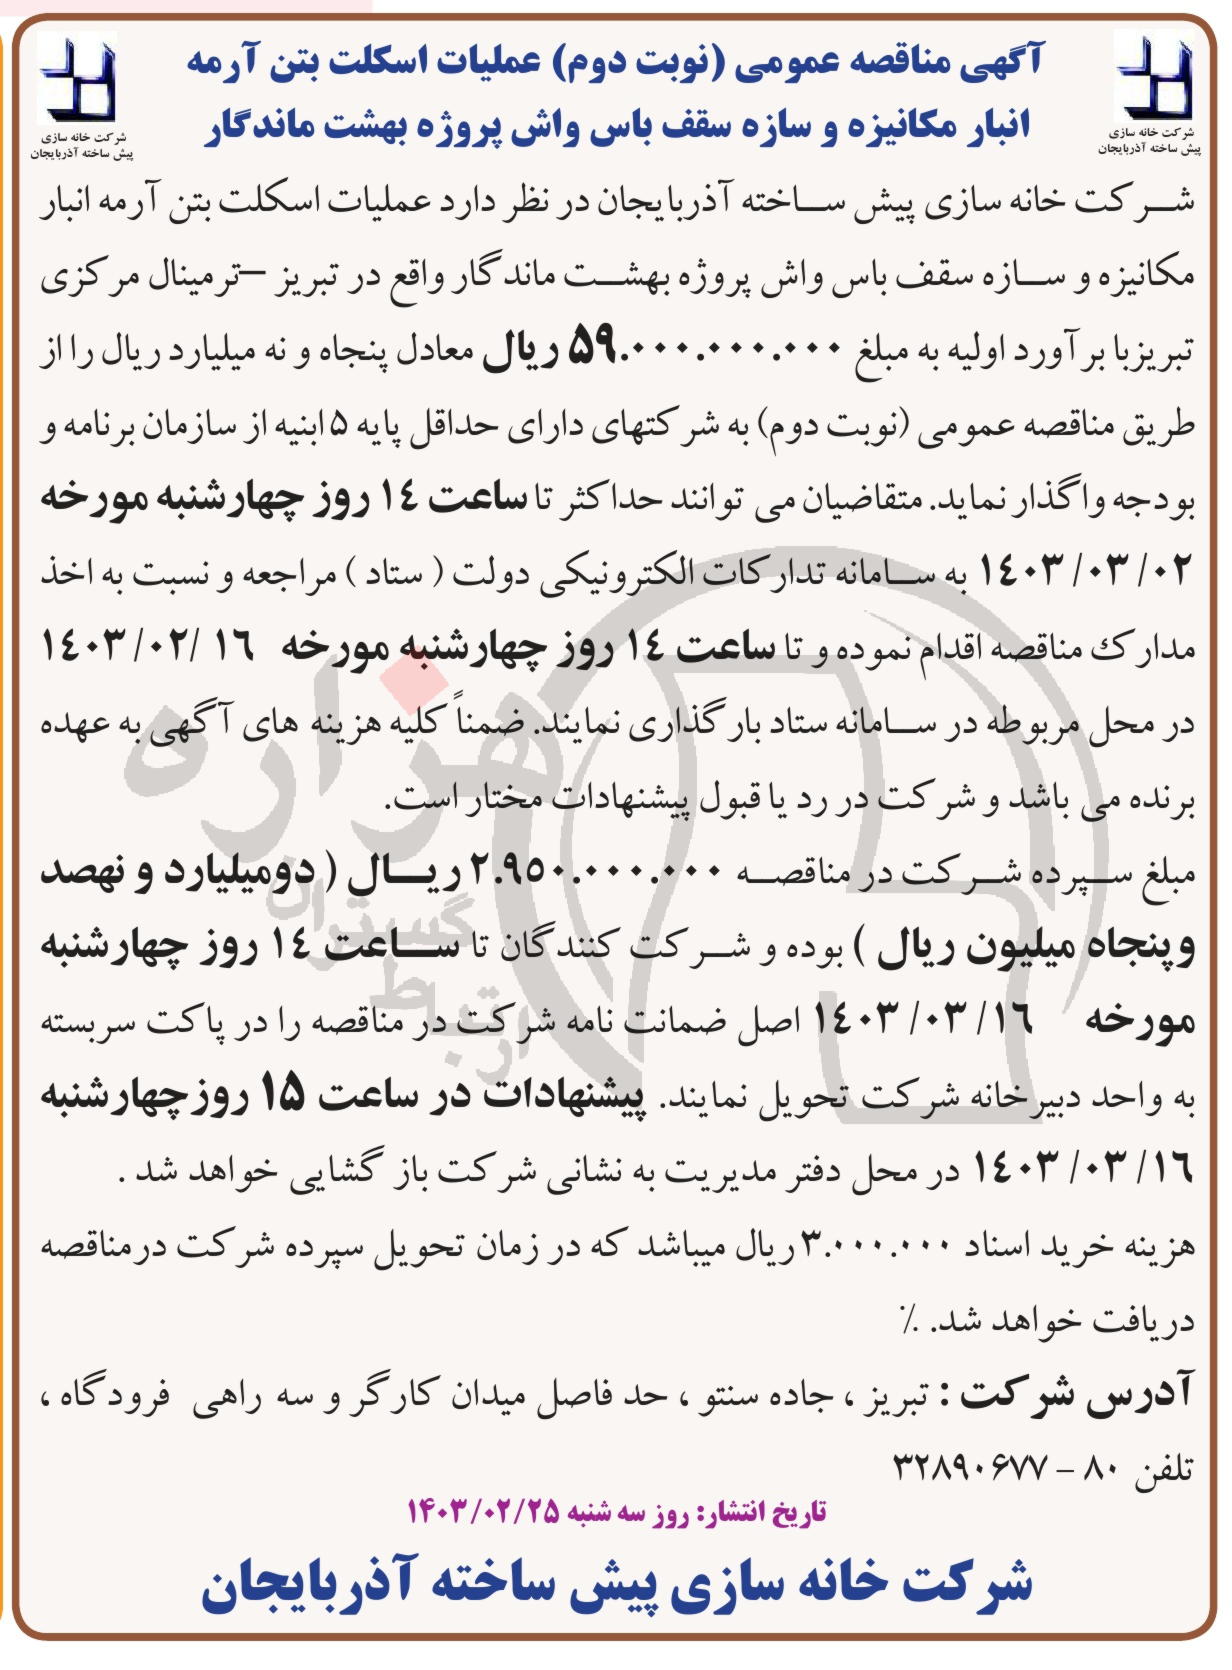 آگهی مناقصه عمومی (نوبت دوم) عملیات اسکلت بتن آرمه
انبار مکانیزه و سازه سقف باس واش پروژه بهشت ماندگار
شرکت خانه سازی
پیش ساخته آذربایجان
شرکت خانه سازی
پیش ساخته آذربایجان
شرکت خانه سازی پیش ساخته آذربایجان در نظر دارد عملیات اسکلت بتن آرمه انبار
مکانیزه و سازه سقف باس واش پروژه بهشت ماندگار واقع در تبریز –ترمینال مرکزی
تبریزبا برآورد اولیه به مبلغ ۵۹.۰۰۰.۰۰۰.۰۰۰ ریال معادل پنجاه و نه میلیارد ریال را از
طریق مناقصه عمومی (نوبت دوم) به شرکتهای دارای حداقل پایه ۵ ابنیه از سازمان برنامه و
بودجه واگذار نماید. متقاضیان می توانند حداکثر تا ساعت ١٤ روز چهارشنبه مورخه
١٤٠٣/٠٣/٠٢ به سامانه تدارکات الکترونیکی دولت ( ستاد ) مراجعه و نسبت به اخذ
مدارك مناقصه اقدام نموده و تا ساعت ١٤ روز چهارشنبه مورخه ١٤٠٣/٠٢/ ١٦
در محل مربوطه در سامانه ستاد بارگذاری نمایند. ضمناً کلیه هزینه های آگهی به عهده
برنده می باشد و شرکت در رد یا قبول پیشنهادات مختار است.
مبلغ سپرده شرکت در مناقصه ۲.۹۵۰.۰۰۰.۰۰۰ ریال ( دومیلیارد و نهصد
وپنجاه میلیون ریال ) بوده و شرکت کنندگان تا ساعت ١٤ روز چهارشنبه
مورخه ١٤٠٣/٠٣/١٦ اصل ضمانت نامه شرکت در مناقصه را در پاکت سربسته
به واحد دبیرخانه شرکت تحویل نمایند. پیشنهادات در ساعت ۱۵ روزچهارشنبه
١٤٠٣/٠٣/١٦ در محل دفتر مدیریت به نشانی شرکت باز گشایی خواهد شد .
هزینه خرید اسناد ۳.۰۰۰.۰۰۰ ریال میباشد که در زمان تحویل سپرده شرکت درمناقصه
دریافت خواهد شد. ٪
آدرس شرکت : تبریز ، جاده سنتو ، حد فاصل میدان کارگر و سه راهی فرودگاه ،
تلفن ۸۰ – ۳۲۸۹۰۶۷۷
تاریخ انتشار: روز سه شنبه ۱۴۰۳/۰۲/۲۵
شرکت خانه سازی پیش ساخته آذربایجان
هزاره
گستران
ارتباط